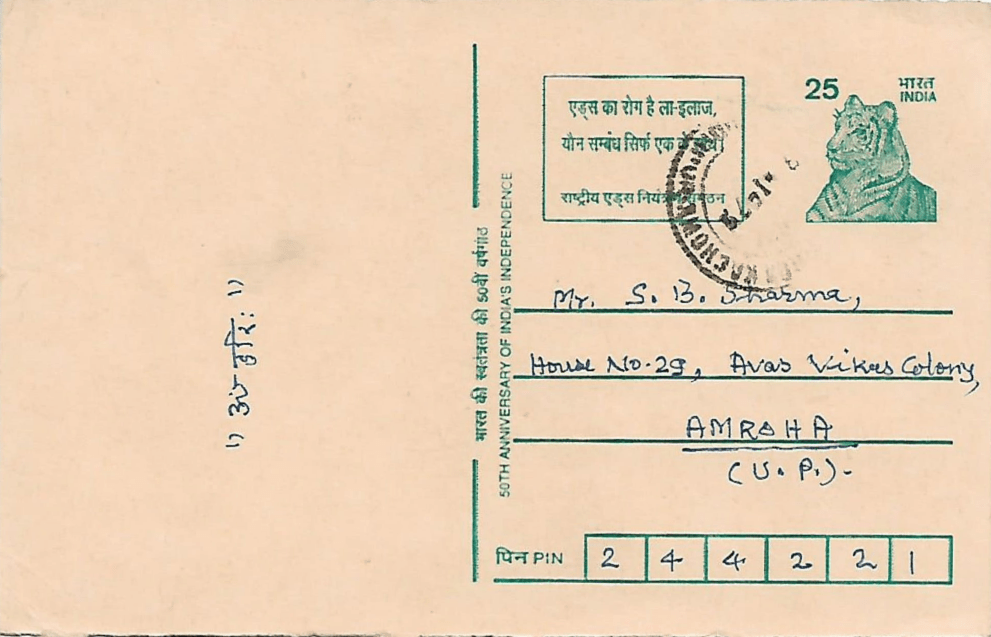 ।। ॐ हरि: ।।
भारत की स्वतंत्रता की 50वीं वर्षगांठ
50TH ANNIVERSARY OF INDIA'S INDEPENDENCE
एड्स का रोग है ला-इलाज,
यौन सम्बंध सिर्फ एक
राष्ट्रीय एड्स
25
भारत
INDIA
LUCKNOW
Mr. S. B. Sharma,
House No. 29, Avas Vikas Colony,
AMROHA
(U.P.).
पिन PIN 2 4 4 2 2 1